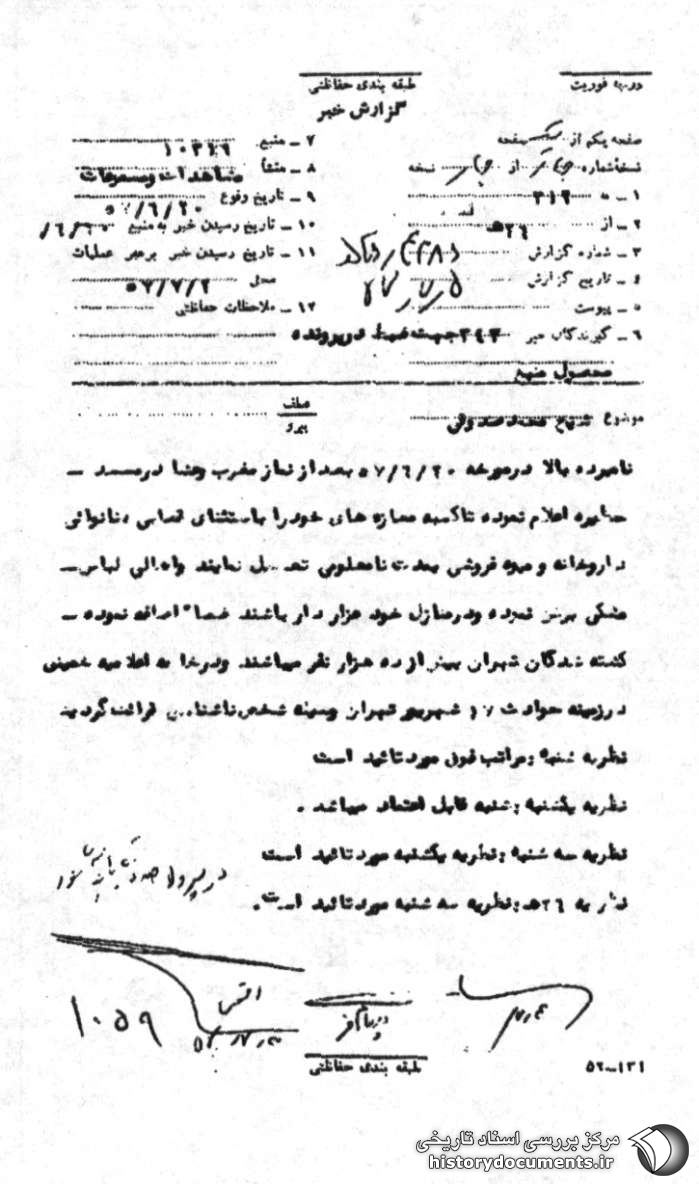 درجه فوریت
طبقه بندی حفاظتی
گزارش خبر
صفحه یکم از یک صفحه
نسخه شماره از نسخه
۱ ـ به ۳۱۲
۲ ـ از ۲۶ه
۳ ـ شماره گزارش
۴ ـ تاریخ گزارش
۵ ـ پیوست
۶ ـ گیرندگان خبر ۳۴۳ جهت ضبط در پرونده
محصول منبع
۷ ـ منبع
۸ ـ منشأ مشاهدات و مسموعات
۹ ـ تاریخ وقوع ۵۷/۶/۲۰
۱۰ ـ تاریخ رسیدن خبر به منبع
۱۱ ـ تاریخ رسیدن خبر به رهبر عملیات
محل ۵۷/۷/۲
۱۲ ـ ملاحظات حفاظتی
موضوع شیخ محمد صدوقی
عطف
پیرو
نامبرده بالا در مورخه ۵۷/۶/۲۰ بعد از نماز مغرب و عشا در مسجد ـ
حظیره اعلام نموده تا کسبه مغازه های خود را باستثنای قصابی و نانوائی
داروخانه و میوه فروشی بمدت نامعلومی تعطیل نمایند و اهالی لباس ـ
مشکی برتن نموده و در منازل خود عزادار باشند ضمنا" اضافه نموده ـ
کشته شدگان تهران بیش از ده هزار نفر میباشند و در خاتمه اعلامیه خمینی
در زمینه حوادث ۱۷ شهریور تهران وسیله شخص ناشناسی قرائت گردید
نظریه شنبه : مراتب فوق مورد تائید است
نظریه یکشنبه : شنبه قابل اعتماد میباشد .
نظریه سه شنبه : نظریه یکشنبه مورد تائید است
نظریه ۲۶ه : نظریه سه شنبه مورد تائید است .
۱۰۵۹
طبقه بندی حفاظتی
۵۲ـ۱۳۱
مرکز بررسی اسناد تاریخی
historydocuments.ir